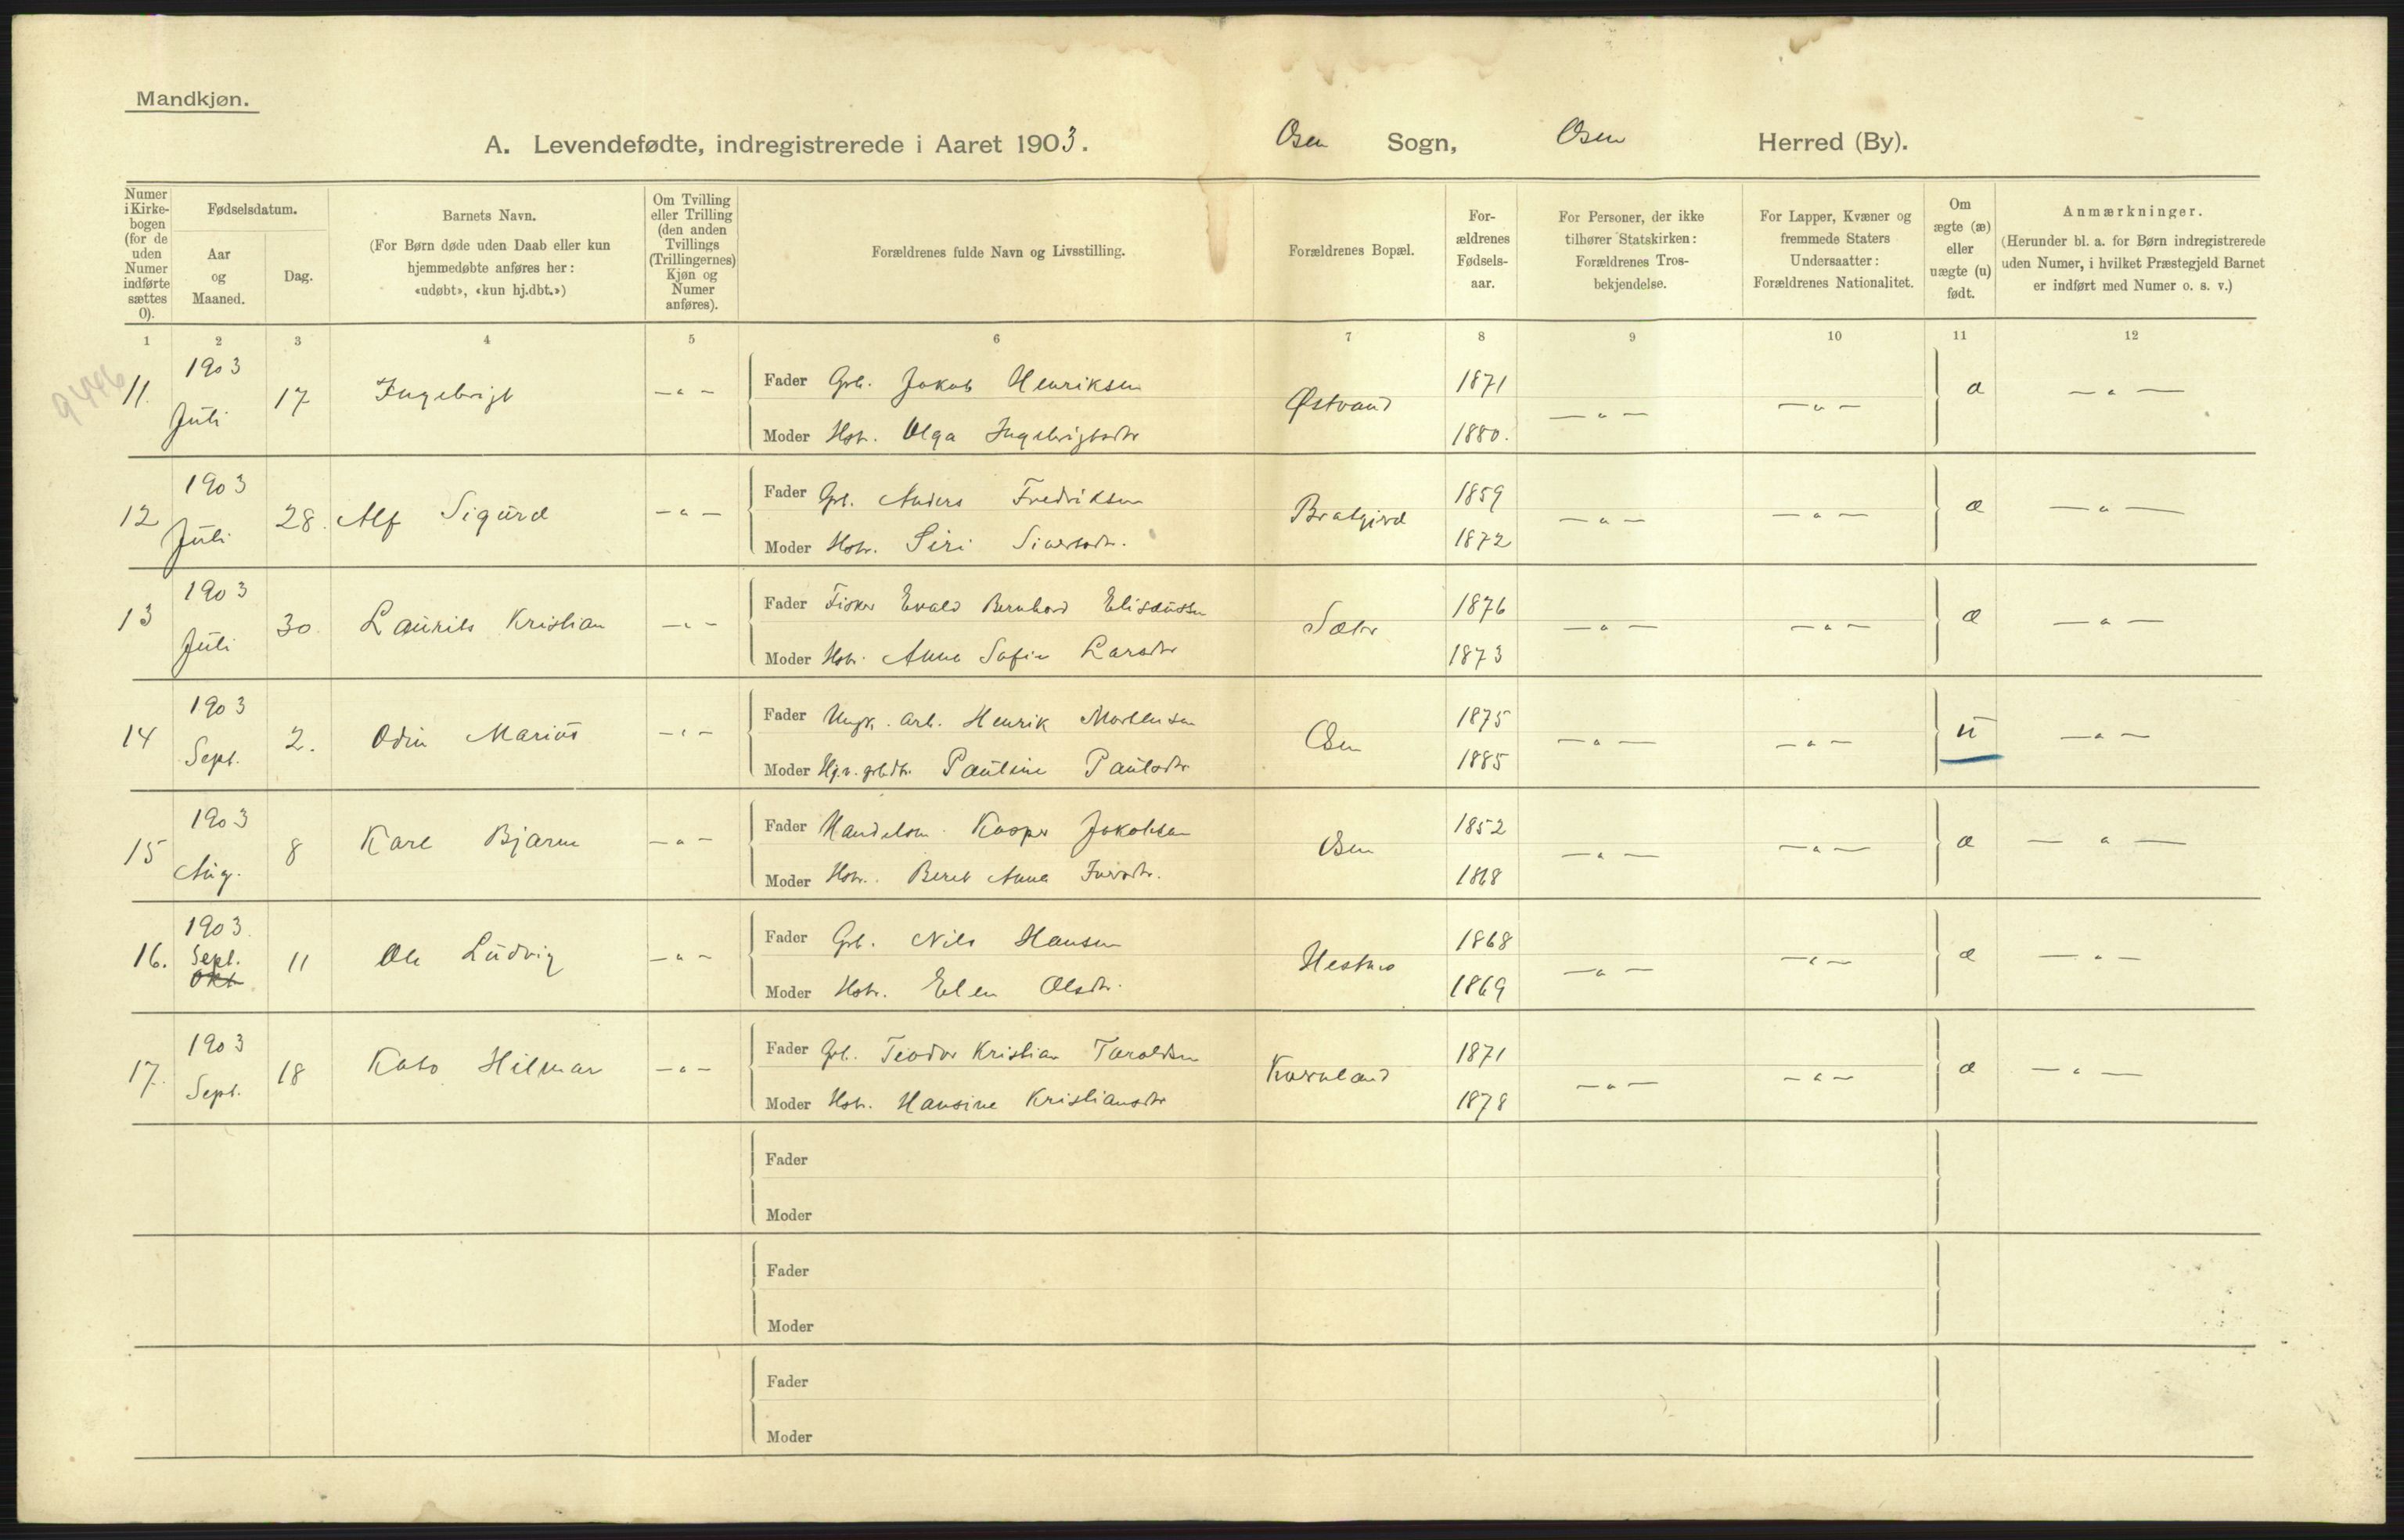 Mandkjøn.
A. Levendefødte, indregistrerede i Aaret 1903. Osen Sogn, Osen Herred (By).
Numer i Kirkebogen (for de uden Numer indførte sættes 0).
Fødselsdatum.
Aar og Maaned.
Dag.
Barnets Navn.
(For Børn døde uden Daab eller kun hjemmedøbte anføres her: «udøbt», «kun hj.dbt.»)
Om Tvilling eller Trilling (den anden Tvillings (Trillingernes) Kjøn og Numer anføres).
Forældrenes fulde Navn og Livsstilling.
Forældrenes Bopæl.
Forældrenes Fødselsaar.
For Personer, der ikke tilhører Statskirken: Forældrenes Trosbekjendelse.
For Lapper, Kvæner og fremmede Staters Undersaatter: Forældrenes Nationalitet.
Om ægte (æ) eller uægte (u) født.
Anmærkninger.
(Herunder bl. a. for Børn indregistrerede uden Numer, i hvilket Præstegjeld Barnet er indført med Numer o. s. v.)
1 2 3 4 5 6 7 8 9 10 11 12
9446
11. 1903 Juli 17 Ingebrigt —"— Fader Grb. Jakob Henriksen Østvand 1871 —"— —"— æ —"—
Moder Hstr. Olga Ingebrigtsdtr 1880.
12 1903 Juli 28. Alf Sigurd —"— Fader Grb. Anders Fredriksen 1859 —"— —"— æ —"—
Moder Hstr. Siri Sivertsdtr. 1872
13 1903 Juli 30 Laurits Kristian —"— Fader Fisker Evald Bernhard Eliseussen Sæter 1876 —"— —"— æ —"—
Moder Hstr. Anna Sofie Larsdtr 1873
14 1903 Sept. 2. Odin Marius —"— Fader Ungk. arb. Henrik Mortensen Osen 1875 —"— —"— u —"—
Moder Pauline Paulsdtr 1885
15 1903 Aug. 8 Karl Bjarne —"— Fader Handelsm. Kasper Jakobsen Osen 1852 —"— —"— æ —"—
Moder Hstr. Beret Anna 1868
16. 1903 Sept. Okt 11 Ole Ludvig —"— Fader Grb. Nils Hansen 1868 —"— —"— æ —"—
Moder Hstr. Elen Olsdtr. 1869
17. 1903 Sept. 18 Kato Hilmar —"— Fader Grb. Teodor Kristian Taraldsen 1871 —"— —"— æ —"—
Moder Hstr. Hansine Kristiansdtr 1878
Fader
Moder
Fader
Moder
Fader
Moder